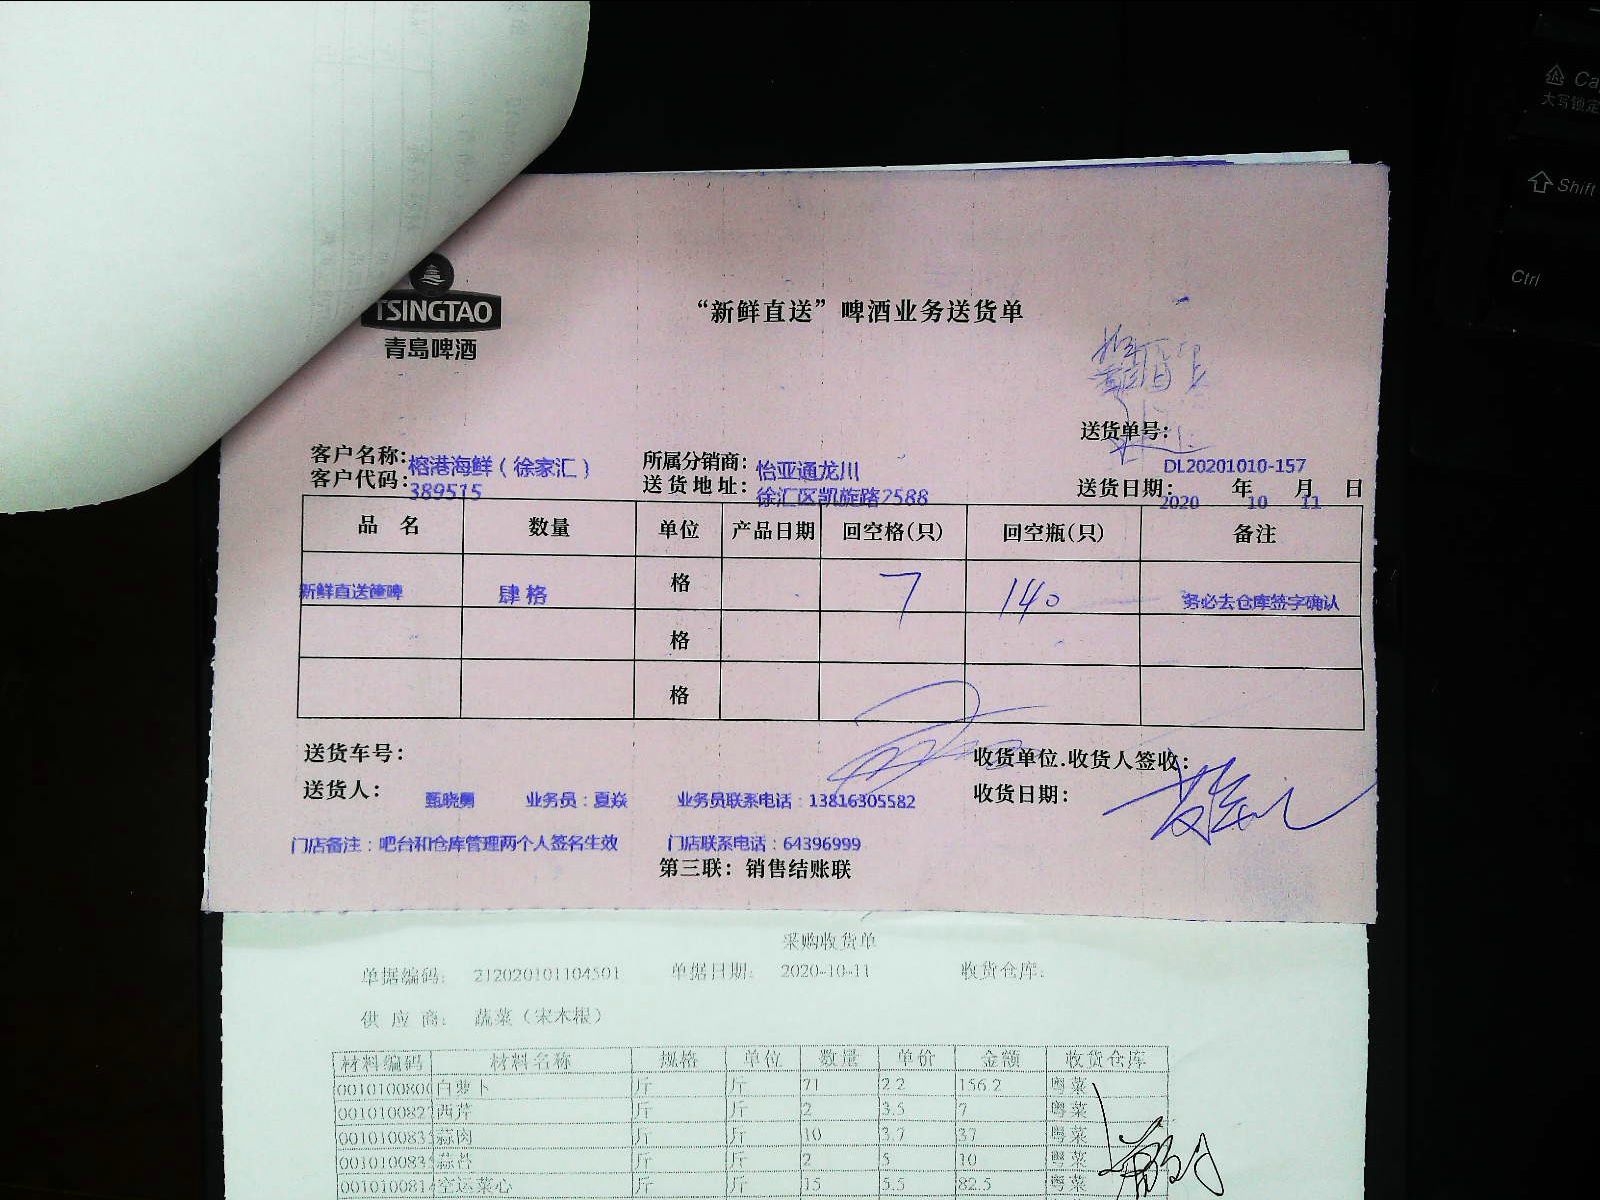 TSINGTAO
青岛啤酒
“新鲜直送”啤酒业务送货单
送货单号：
DL20201010-157
客户名称：榕港海鲜（徐家汇）
所属分销商：怡亚通龙川
客户代码：389515
送货地址：徐汇区凯旋路2588
送货日期：2020年10月11日
品名 数量 单位 产品日期 回空格(只) 回空瓶(只) 备注
新鲜直送篓啤 肆格 格 7 140 务必去仓库签字确认
格
格
送货车号：
收货单位.收货人签收：
送货人：甄晓勇 业务员：夏焱 业务员联系电话：13816305582
收货日期：
门店备注：吧台和仓库管理两个人签名生效 门店联系电话：64396999
第三联：销售结账联
采购收货单
单据编码： 212020101104501 单据日期： 2020-10-11 收货仓库：
供应商： 蔬菜（宋木根）
材料编码 材料名称 规格 单位 数量 单价 金额 收货仓库
0010100800 白萝卜 斤 斤 71 2.2 156.2 粤菜
001010082 西芹 斤 斤 2 3.5 7 粤菜
001010083 蒜肉 斤 斤 10 3.7 37 粤菜
001010083 蒜苔 斤 斤 2 5 10 粤菜
001010081 空运菜心 斤 斤 15 5.5 82.5 粤菜
大写锁定
Shift
Ctrl